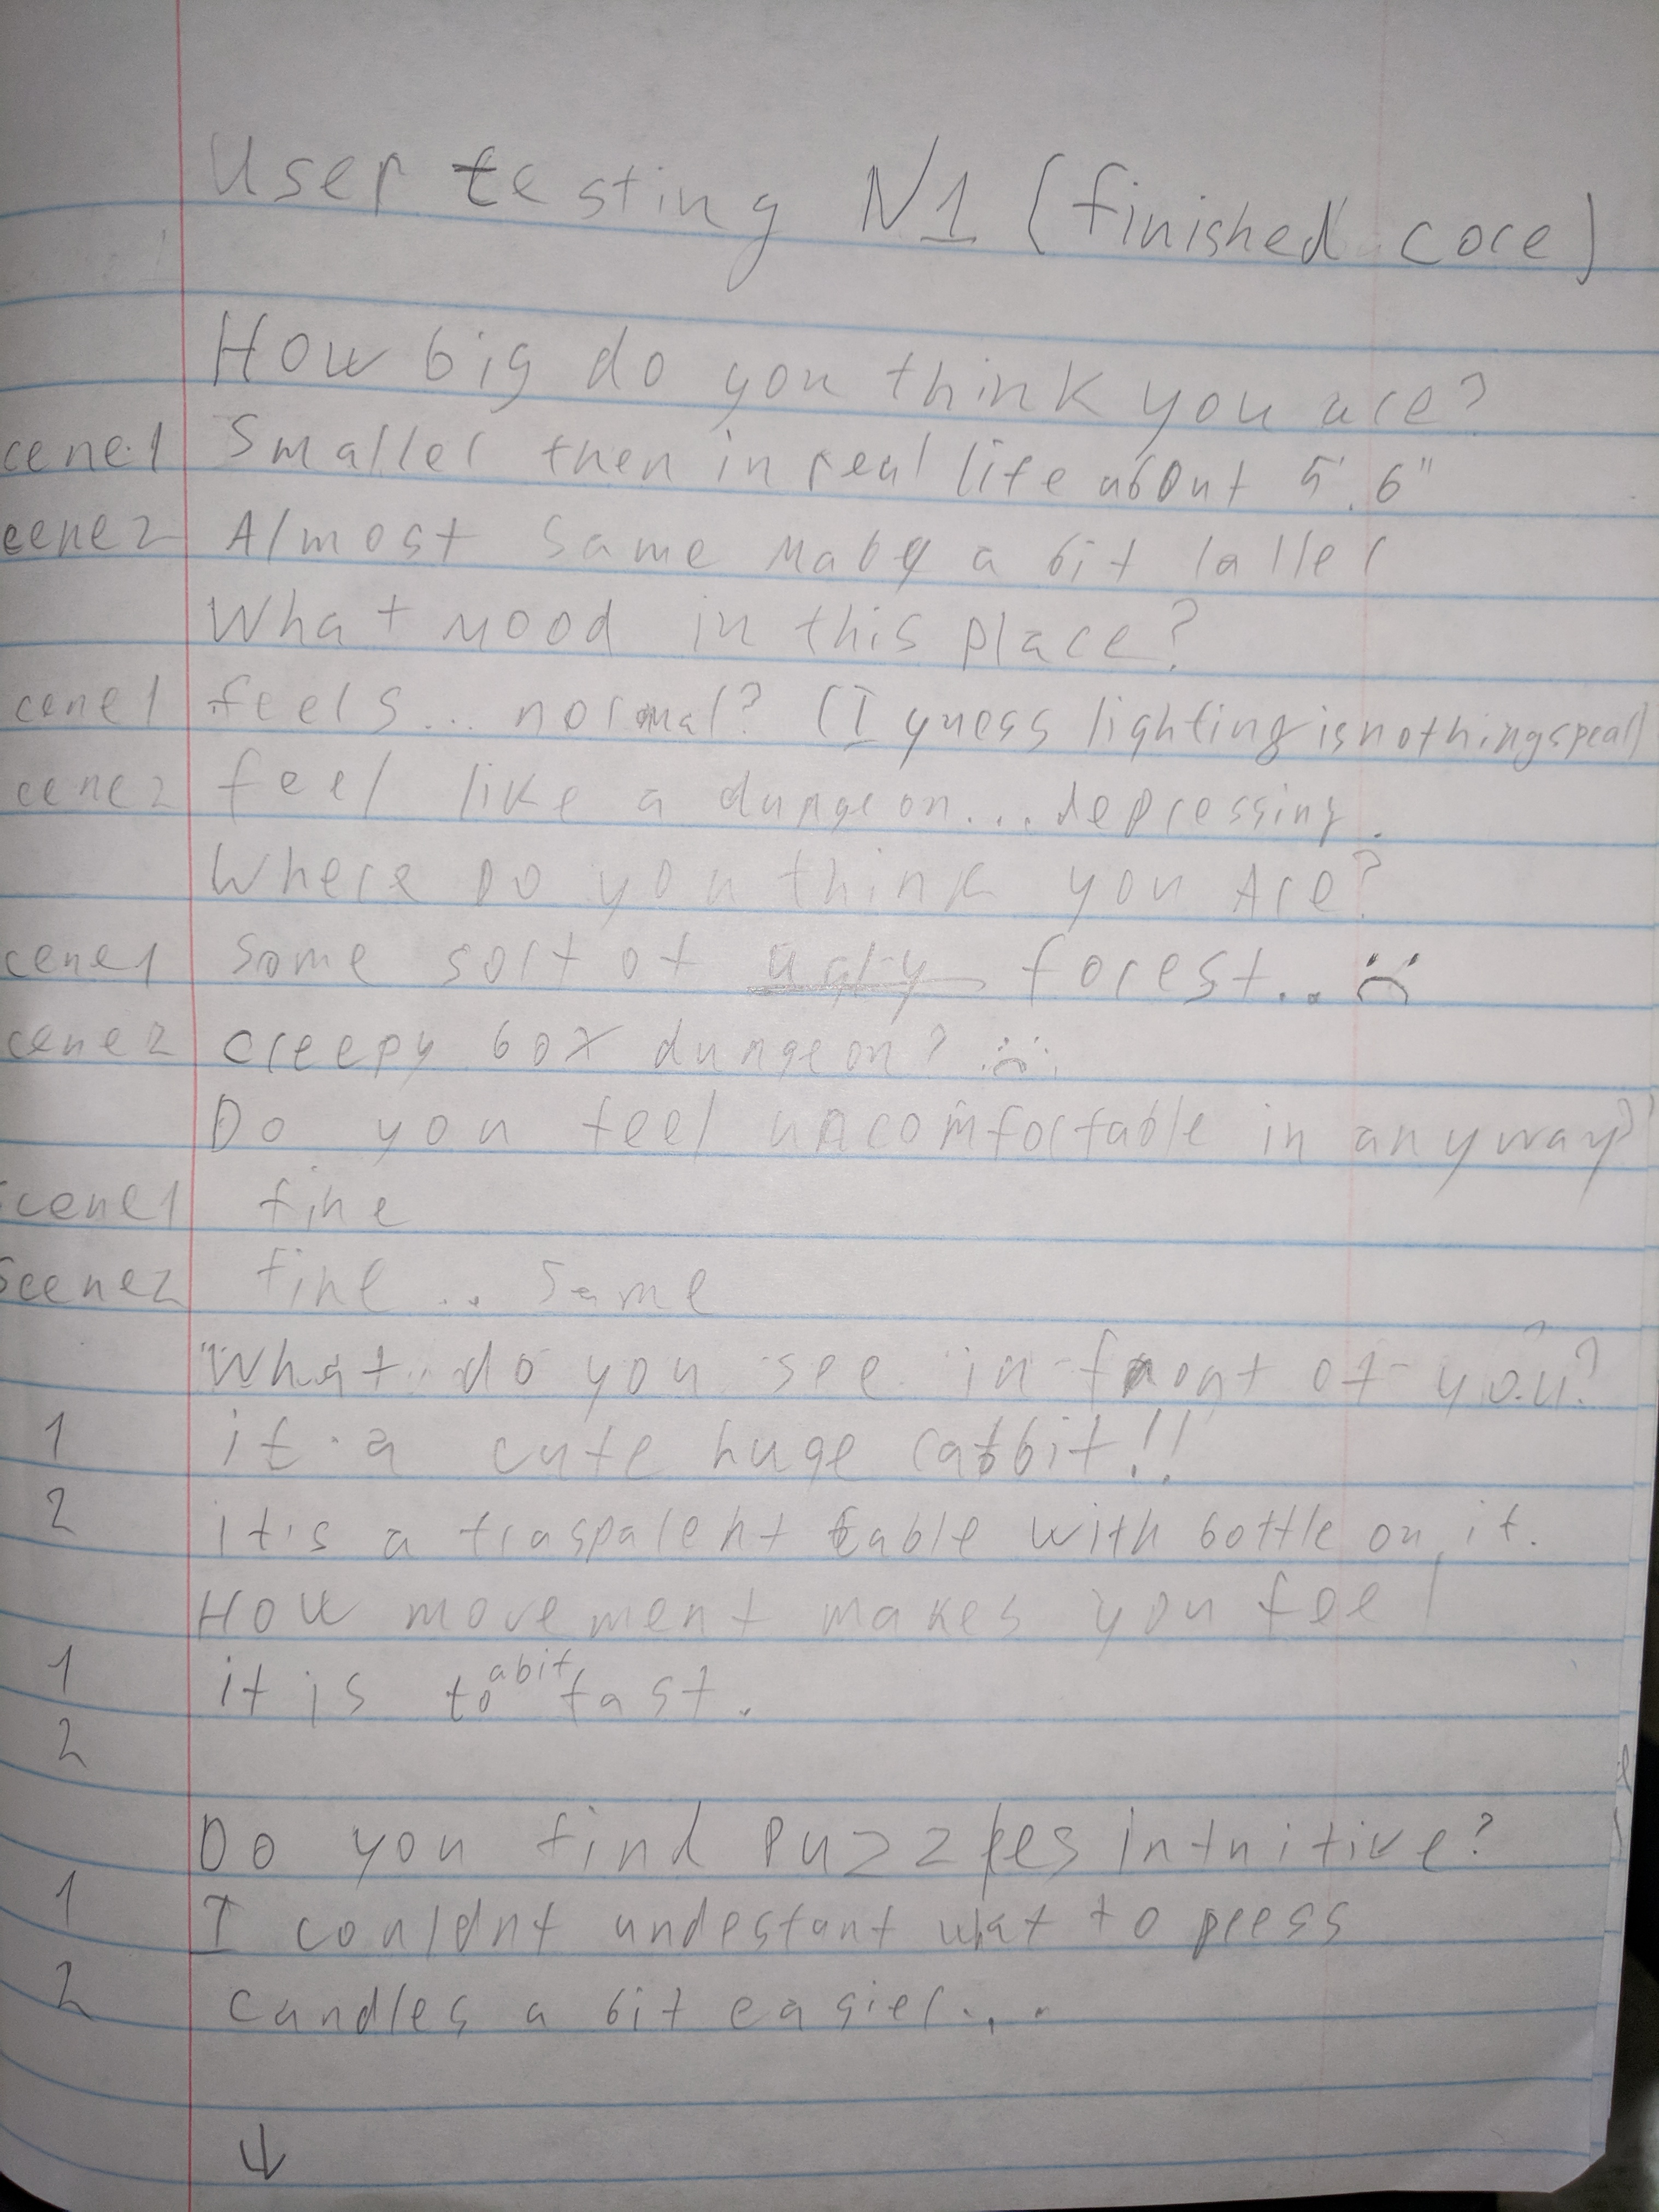 User testing N1 (finished core)
How big do you think you are?
cene1 Smaller then in real life about 5'.6"
cene2 Almost same Maby a bit taller
What mood in this place?
cene1 feels... normal? (I guess lighting is nothing speal)
cene2 feel like a dungeon... depressing.
Where Do you think you Are?
cene1 some sort of ugly forest... :(
cene2 creepy box dungeon? :(
Do you feel uncomfortable in anyway?
scene1 fine
Scene2 fine .. same
What do you see in front of you?
1 it a cute huge rabbit!!
2 it's a traspalent table with bottle on it.
How movement makes you feel
1 it is to a bit fast.
2
Do you find Puzzles intuitive?
1 I couldnt undestant what to press
2 candles a bit easier...
↓